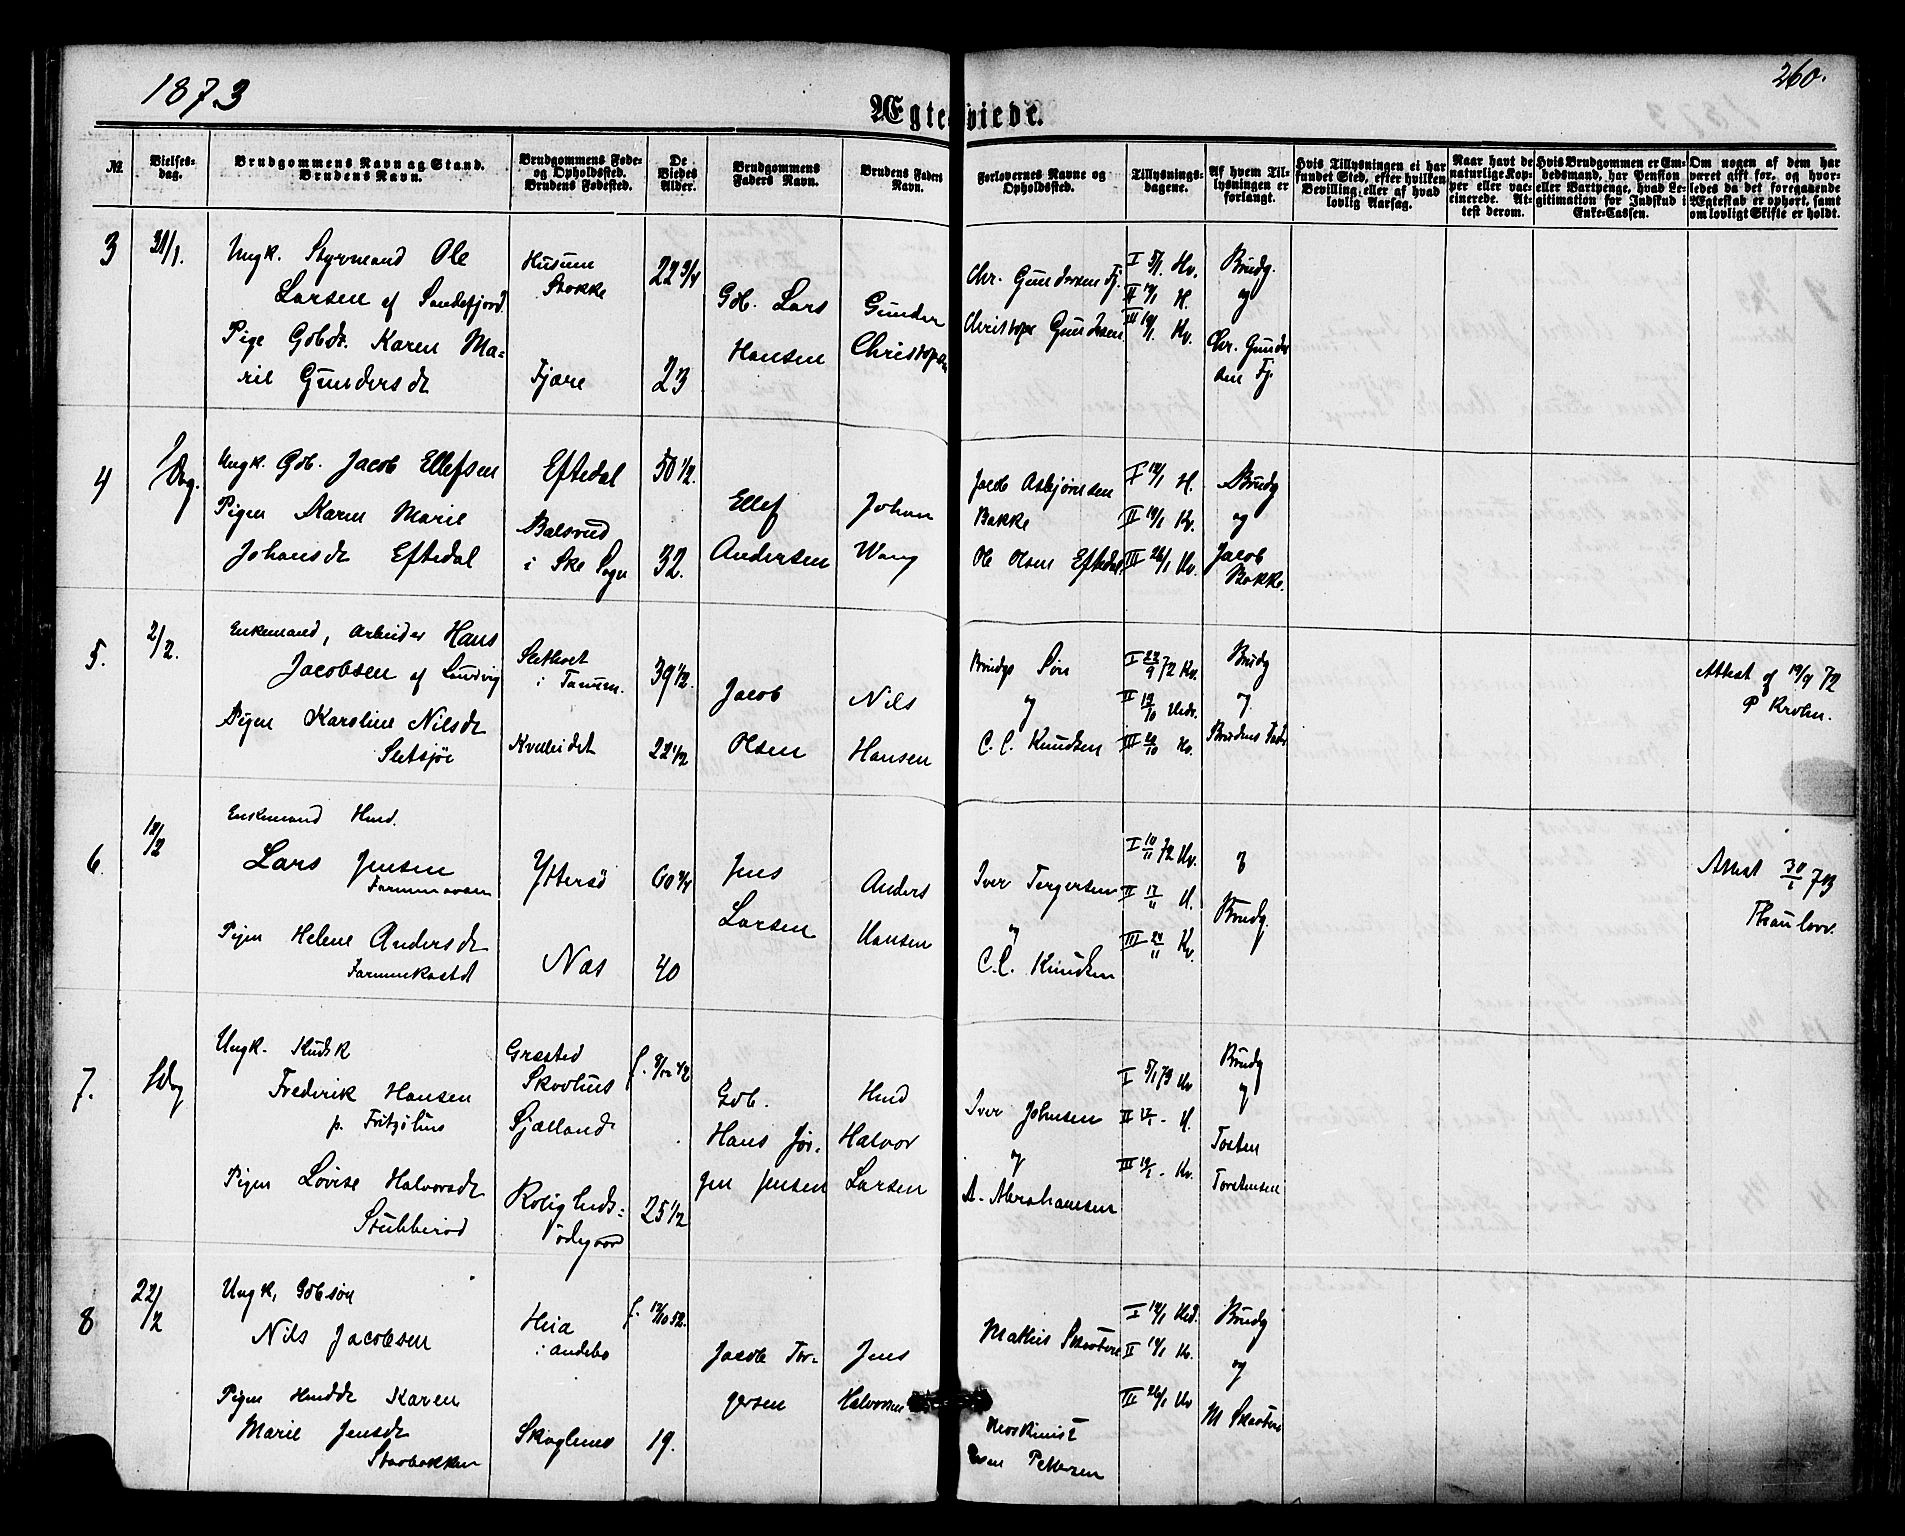 1873
260.
Ægteviede.
№
Vielses-
dag.
Brudgommens Navn og Stand.
Brudens Navn.
Brudgommens Føde-
og Opholdssted.
Brudens Fødested.
De
Viedes
Alder.
Brudgommens
Faders Navn.
Brudens Faders
Navn.
Forlovernes Navne og
Opholdssted.
Tillysnings-
dagene.
Af hvem Til-
lysningen er
forlangt.
Hvis Tillysningen ei har
fundet Sted, efter hvilken
Bevilling eller af hvad
lovlig Aarsag.
Naar havt de
naturlige Kop-
per eller vac-
cinerede. At-
test derom.
Hvis Brudgommen er Em-
bedsmand, har Pension
eller Vartpenge, hvad Le-
gitimation for Indskud i
Enke-Cassen.
Om nogen af dem har
været gift før, og hvor-
ledes da det foregaaende
Ægteskab er ophørt, samt
om lovligt Skifte er holdt.
3
31/1.
Ungk. Styrmand Ole
Larsen af Sandefjord
Pige Gdbdt. Karen Ma-
rie Gundersdt
Husum
Stokke
Fjære
22 3/4
23
Gdb. Lars
Hansen
Gunder
Christophersen
Chr. Gundersen Fj.
Christoph Gundersen
I 5/1 Hv.
II 12/1 H.
III 19/1 Kv.
Brudg.
og
Chr. Gunder
sen Fj.
4
s Dag.
Ungk. Gdb. Jacob Ellefsen
Pigen Karen Marie
Johansdt Eftedal
Eftedal
Balsrud
i Ske Sogn
50 1/2.
32.
Ellef
Andersen
Johan
Wang
Jacob Asbjørnsen
Bakke
Ole Olsen Eftedal
I 12/1 H.
II 19/1 Kv.
III 26/1 Hv.
Brudg
og
Jacob
Bakke.
5.
2/2.
Enkemand, Arbeider Hans
Jacobsen af Laurvig
Pigen Karoline Nilsdt
Sletsjøe
i Tanum.
Kvelleidet
39 1/2.
22 1/2
Jacob
Olsen
Nils
Hansen
Brudgs Søn
og
C. C. Knudsen
I 72 Kv.
II
III 20/10 Kv.
Brudg
og
Brudens Fader
Attest af 19/9 72
P Krohn.
6.
12/2
Enkemand Hmd.
Lars Jensen
Pigen Helene Andersdt
Yttersø
Næs
60 3/4
40
Jens
Larsen
Anders
Hansen
Iver Torgersen
og
C. C. Knudsen
I 10/11 72 Hv.
II 17/11 H.
III 24/11 Kv.
Brudg.
Attest 30/1 73
Thaulow.
7.
s Dag
Ungk. Kudsk
Frederik Hansen
p. Fritzøhus
Pigen Lovise Halvorsdt
Stubberød
Græsted
Skovhus
Sjælland
Roligheds-
ødegaard
f. 9/12 42
25 1/2
Gdb.
Hans Jør-
gen Jensen
Hmd
Halvor
Larsen
Iver Johnsen
og
A. Abrahamsen
I 5/1 73 Hv
II 12/1 - H.
III 19/1 - Kv.
Brudg
og
Tosten
Torstensen
8
22/2
Ungk, Gdb søn
Nils Jacobsen
Pigen Hmddt Karen
Marie Jensdt
Stavbakken
Heia
i Andebo
Skoglund
f. 12/10 52.
19.
Jacob Tor-
gersen
Jens
Halvorsen
Mathis
Petersen
I 12/1 Hed.
II 19/1 Kv.
III 26/1 Hv
Brudg
og
M